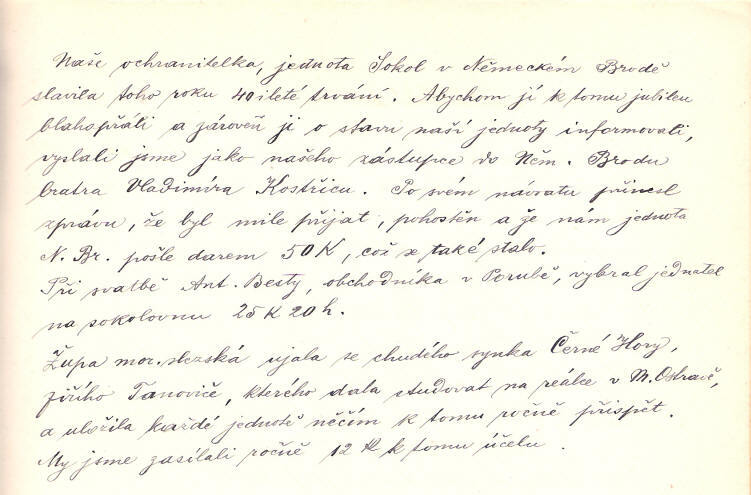 Naše ochranitelka, jednota Sokol v Německém Brodě
slavila toho roku 40ileté trvání. Abychom jí k tomu jubileu
blahopřáli a zároveň ji o stavu naší jednoty informovali,
vyslali jsme jako našeho zástupce do Něm. Brodu
bratra Vladimíra Kostřicu. Po svém návratu přinesl
zprávu, že byl mile přijat, pohostěn a že nám jednota
N. Br. pošle darem 50 K, což se také stalo.
Při svatbě Ant. Besty, obchodníka v Porubě, vybral jednatel
na sokolovnu 25 K 20 h.
Župa mor. slezská ujala se chudého synka Černé Hory,
Jiřího Tanoviče, kterého dala studovat na reálce v M. Ostravě,
a uložila každé jednotě něčím k tomu ročně přispět.
My jsme zasílali ročně 12 K k tomu účelu.